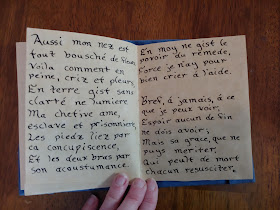 Aussi mon nez est
tout bousché de
Voila comment en
peine, criz et pleurs,
En terre gist sans
clarté ne lumiere
Ma chetive ame,
esclave et prisonniere,
Les piedz liez par
ça concupiscence,
Et les deux bras par
son acoustumance.
En moy ne gist le
povoir du remede,
Force je n'ay pour
bien crier à l'aide.
Bref, á jamais, á ce
que je puys voir,
Espoir aucun de fin
ne dois avoir;
Mais sa grace, que ne
puys meriter,
Qui peult de mort
chacun resusciter,